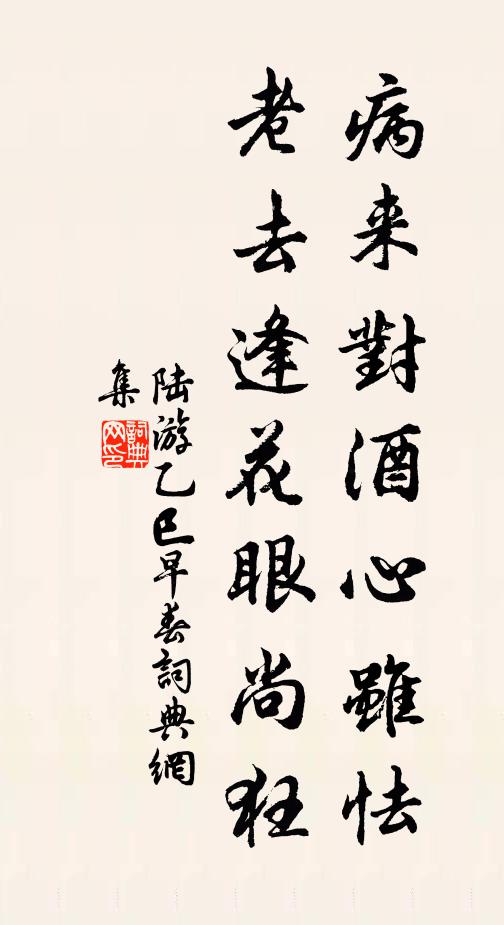 病来對酒心雖怯
老去逢花眼尚狂
陆游乙巳早春詞典網
集
詞典网印